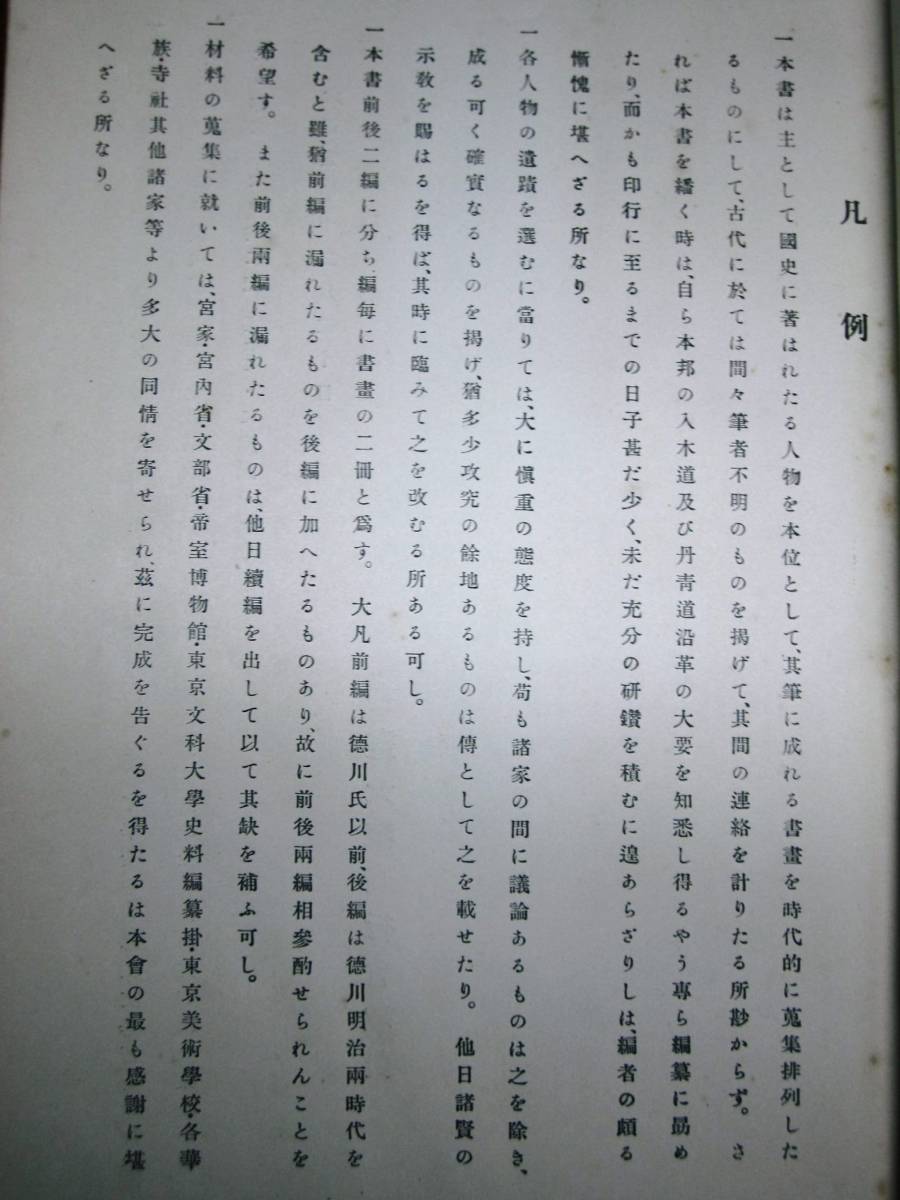 凡例
一本書は主として國史に著はれたる人物を本位として、其筆に成れる書畫を時代的に蒐集排列した
るものにして、古代に於ては間々筆者不明のものを揭げて、其間の連絡を計りたる所尠からず。さ
れば本書を繙く時は、自ら本邦の入木道及び丹靑道沿革の大要を知悉し得るやう專ら編纂に勗め
たり、而かも印行に至るまでの日子甚だ少く、未だ充分の研鑽を積むに遑あらざりしは、編者の頗る
慚愧に堪へざる所なり。
一各人物の遺蹟を選むに當りては、大に愼重の態度を持し、苟も諸家の間に議論あるものは之を除き、
成る可く確實なるものを揭げ、猶多少攻究の餘地あるものは傳として之を載せたり。他日諸賢の
示敎を賜はるを得ば、其時に臨みて之を改むる所ある可し。
一本書前後二編に分ち編每に書畫の二冊と爲す。大凡前編は德川氏以前、後編は德川明治兩時代を
含むと雖、猶前編に漏れたるものを後編に加へたるものあり、故に前後兩編相參酌せられんことを
希望す。また前後兩編に漏れたるものは、他日續編を出して以て其缺を補ふ可し。
一材料の蒐集に就いては、宮家・宮內省・文部省・帝室博物館・東京文科大學史料編纂掛・東京美術學校・各華
族・寺社其他諸家等より多大の同情を寄せられ、茲に完成を告ぐるを得たるは本會の最も感謝に堪
へざる所なり。